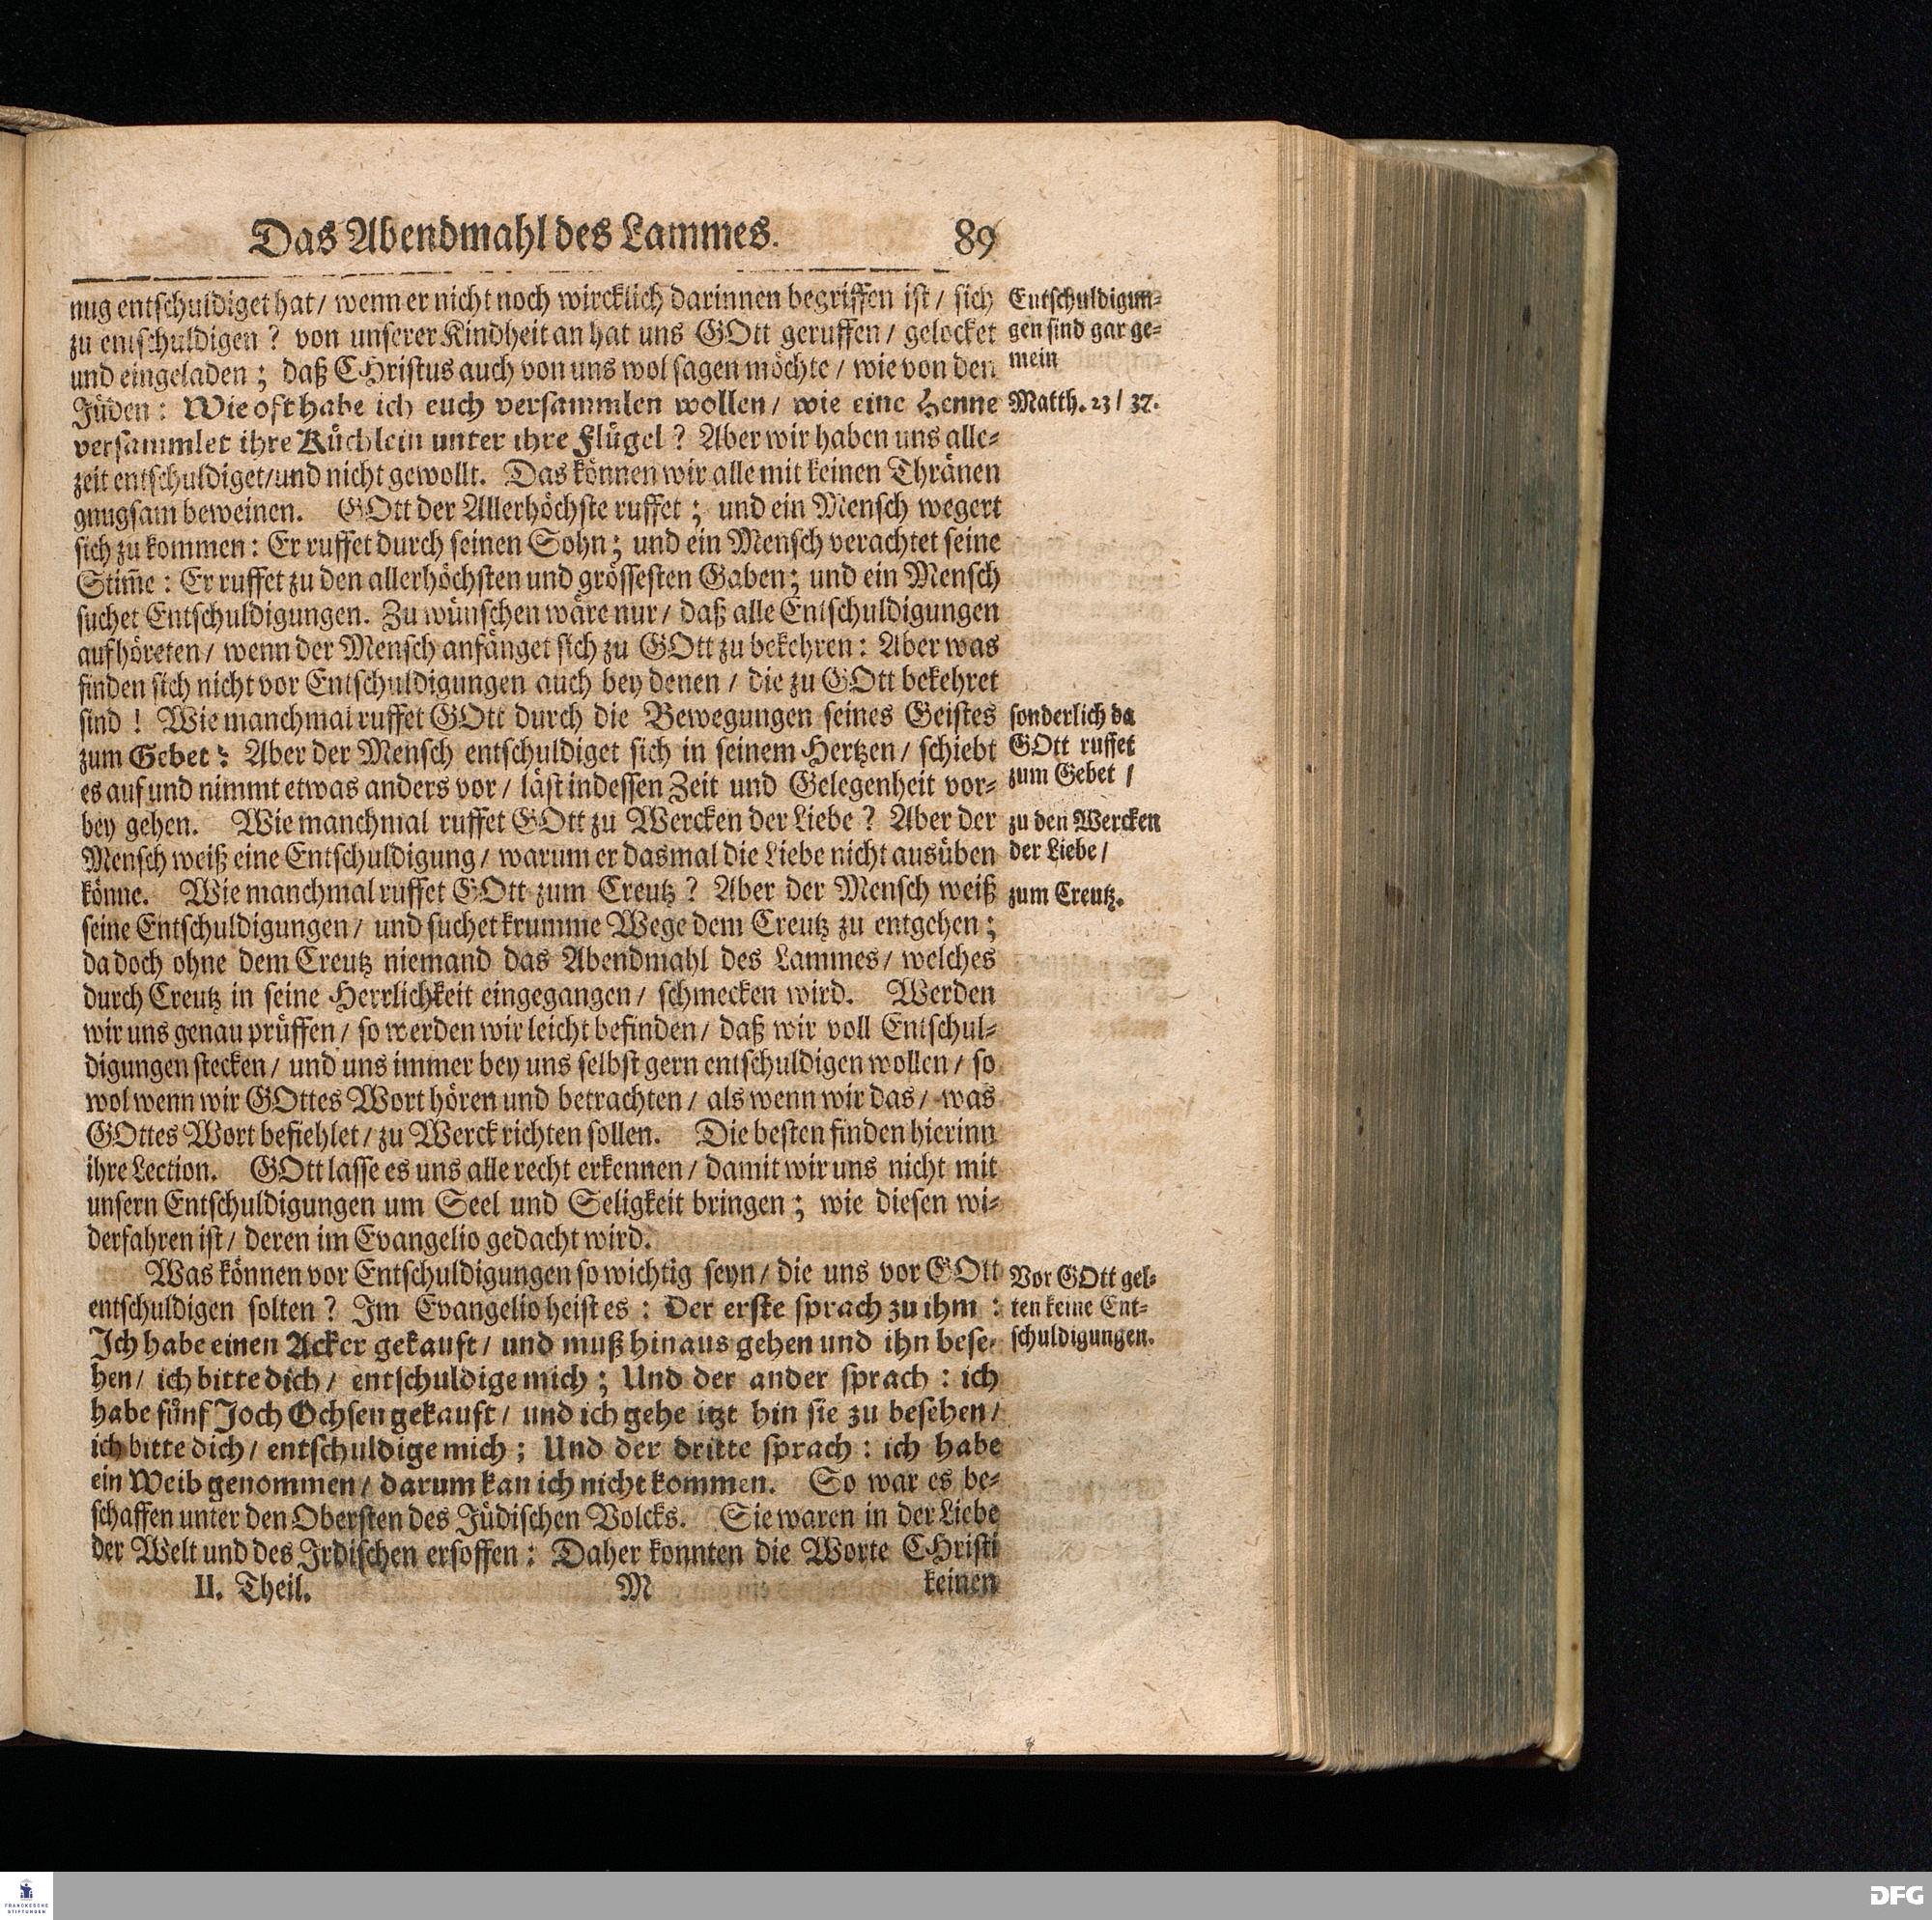 Das Abendmahl des Lammes. 89
nug entschuldiget hat/ wenn er nicht noch wircklich darinnen begriffen ist/ sich
zu entschuldigen? von unserer Kindheit an hat uns GOtt geruffen/ gelocket
und eingeladen; daß CHristus auch von uns wol sagen möchte/ wie von den
Jüden: Wie oft habe ich euch versammlen wollen/ wie eine Henne
versammlet ihre Küchlein unter ihre Flügel? Aber wir haben uns alle-
zeit entschuldiget/und nicht gewollt. Das können wir alle mit keinen Thränen
gnugsam beweinen. GOtt der Allerhöchste ruffet; und ein Mensch wegert
sich zu kommen: Er ruffet durch seinen Sohn; und ein Mensch verachtet seine
Stim̃e: Er ruffet zu den allerhöchsten und grössesten Gaben; und ein Mensch
suchet Entschuldigungen. Zu wünschen wäre nur/ daß alle Entschuldigungen
aufhöreten/ wenn der Mensch anfänget sich zu GOtt zu bekehren: Aber was
finden sich nicht vor Entschuldigungen auch bey denen/ die zu GOtt bekehret
sind! Wie manchmal ruffet GOtt durch die Bewegungen seines Geistes
zum Gebet: Aber der Mensch entschuldiget sich in seinem Hertzen/ schiebt
es auf und nimmt etwas anders vor/ läst indessen Zeit und Gelegenheit vor-
bey gehen. Wie manchmal ruffet GOtt zu Wercken der Liebe? Aber der
Mensch weiß eine Entschuldigung/ warum er dasmal die Liebe nicht ausüben
könne. Wie manchmal ruffet GOtt zum Creutz? Aber der Mensch weiß
seine Entschuldigungen/ und suchet krumme Wege dem Creutz zu entgehen;
da doch ohne dem Creutz niemand das Abendmahl des Lammes/ welches
durch Creutz in seine Herrlichkeit eingegangen/ schmecken wird. Werden
wir uns genau prüffen/ so werden wir leicht befinden/ daß wir voll Entschul-
digungen stecken/ und uns immer bey uns selbst gern entschuldigen wollen/ so
wol wenn wir GOttes Wort hören und betrachten/ als wenn wir das/ was
GOttes Wort befiehlet/ zu Werck richten sollen. Die besten finden hierinn
ihre Lection. GOtt lasse es uns alle recht erkennen/ damit wir uns nicht mit
unsern Entschuldigungen um Seel und Seligkeit bringen; wie diesen wi-
derfahren ist/ deren im Evangelio gedacht wird.
Was können vor Entschuldigungen so wichtig seyn/ die uns vor GOtt
entschuldigen solten? Im Evangelio heist es: Der erste sprach zu ihm:
Ich habe einen Acker gekauft/ und muß hinaus gehen und ihn bese-
hen/ ich bitte dich/ entschuldige mich; Und der ander sprach: ich
habe fünf Joch Ochsen gekauft/ und ich gehe itzt hin sie zu besehen/
ich bitte dich/ entschuldige mich; Und der dritte sprach: ich habe
ein Weib genommen/ darum kan ich nicht kommen. So war es be-
schaffen unter den Obersten des Jüdischen Volcks. Sie waren in der Liebe
der Welt und des Irdischen ersoffen: Daher konnten die Worte CHristi
II. Theil. M keinen
Entschuldigun-
gen sind gar ge-
mein
Matth. 23/ 37.
sonderlich da
GOtt ruffet
zum Gebet/
zu den Wercken
der Liebe/
zum Creutz.
Vor GOtt gel-
ten keine Ent-
schuldigungen.
FRANCKESCHE
STIFTUNGEN
DFG